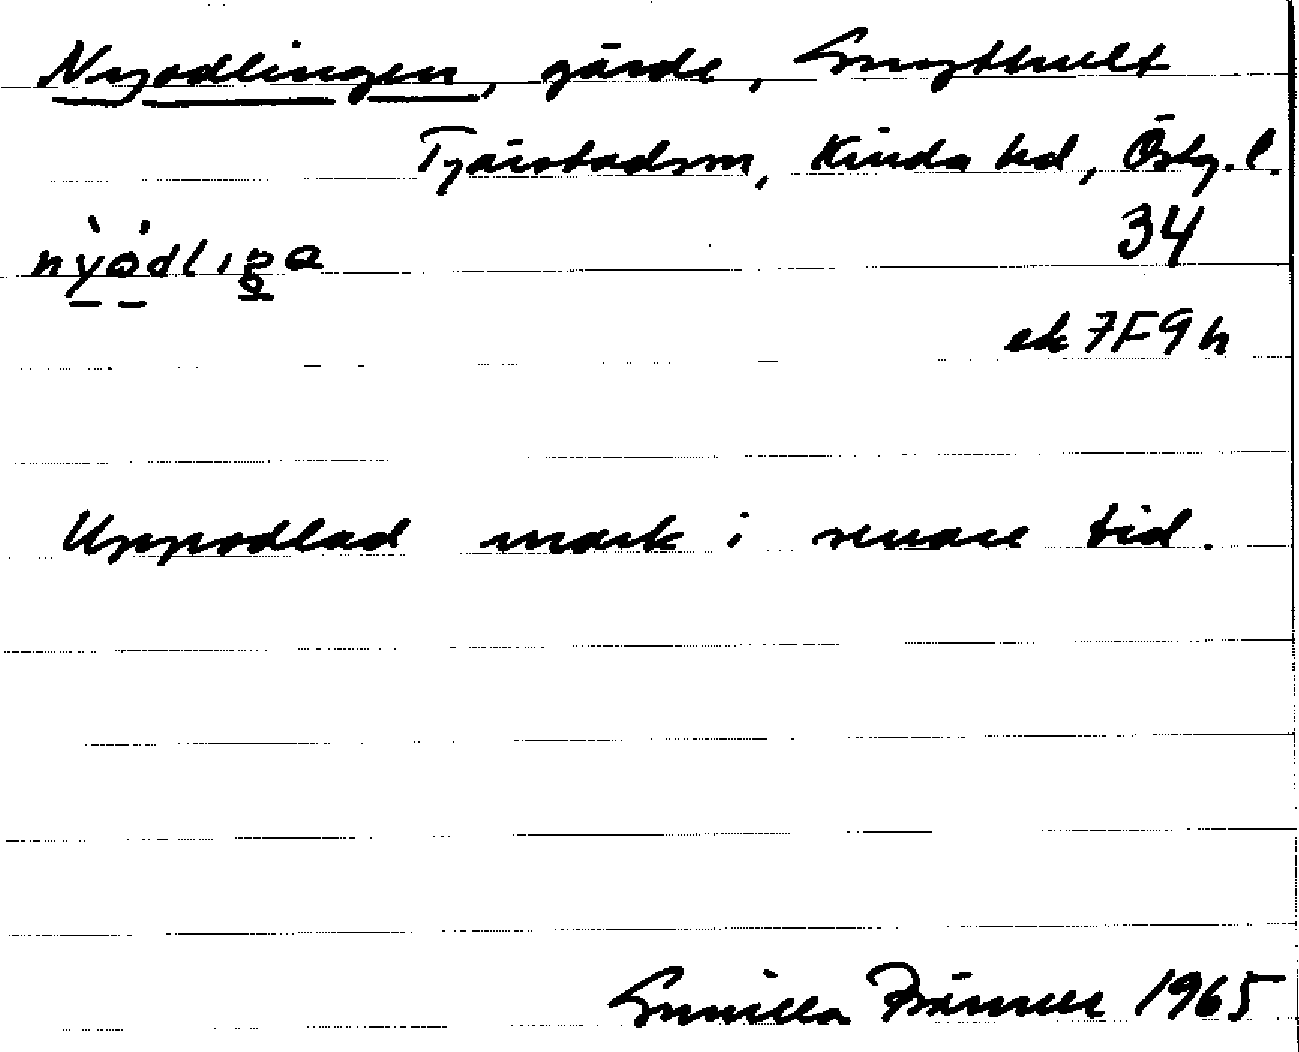 Nyodlingen, gärde, Smytthult
Tjärstad sn, Kinda hd, Östg. l.
34
nỳódlıga
ek 7F9h
Uppodlad mark i senare tid.
Gunilla Främer 1965